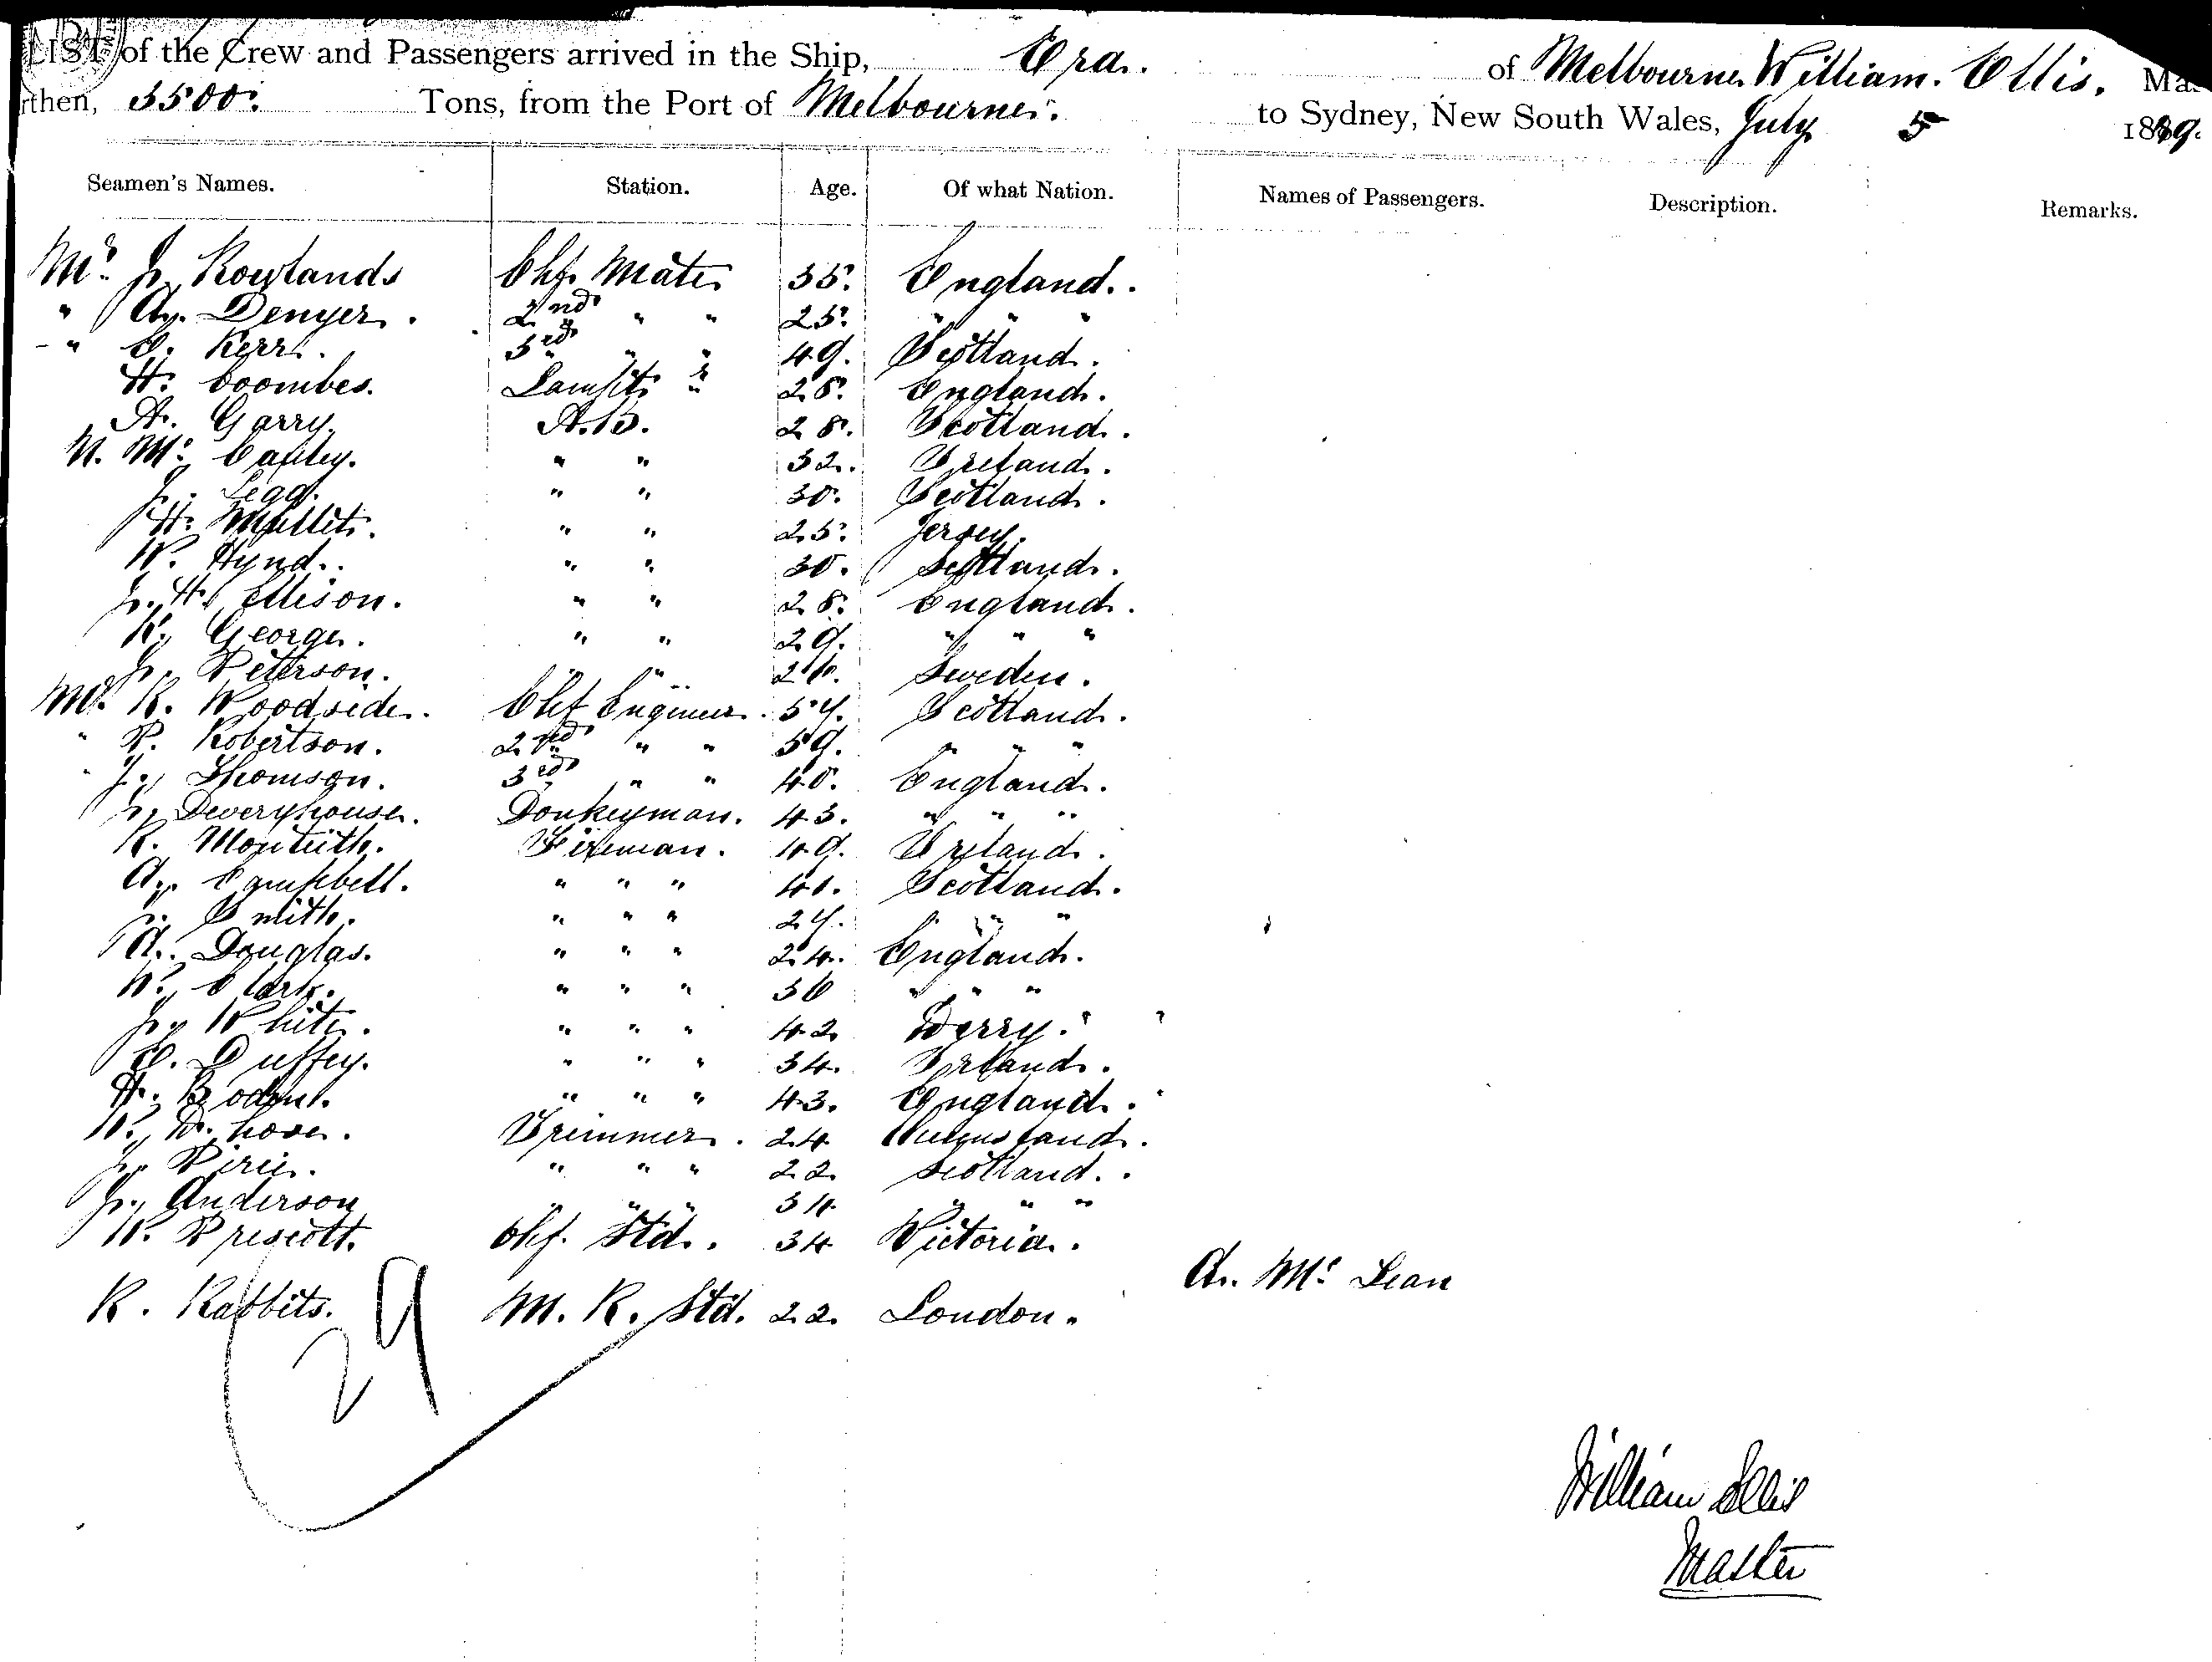 LIST of the Crew and Passengers arrived in the Ship, Era. of Melbourne William. Ellis. Mas
rthen, 3500. Tons, from the Port of Melbourne. to Sydney, New South Wales, July 5 1889.
Seamen's Names. Station. Age. Of what Nation. Names of Passengers. Description. Remarks.
Mr. J. Rowlands Chf. Mate. 35. England.
" A. Denyer. 2nd " " 25. " " "
" C. Kerr. 3rd " " 49. Scotland.
H. Coombes. Lamptr. " 28. England.
A. Garry. A.B. 28. Scotland.
N. Mc. Cauley. " " 32. Ireland.
J. Legg. " " 30. Scotland.
H. Mallet. " " 25. Jersey.
W. Hynd. " " 30. Scotland.
J. H. Ellison. " " 28. England.
R. George. " " 29. " " "
J. Peterson. " " 26. Sweden.
Mr. R. Woodside. Chf Engineer. 54. Scotland.
" P. Robertson. 2nd " " 59. " " "
" J. Thomson. 3rd " " 40. England.
J. Deveryhouse. Donkeyman. 43. " " "
R. Monteith. Fireman. 49. Ireland.
A. Campbell. " " " 41. Scotland.
J. Smith. " " " 24. " " "
A. Douglas. " " " 24. England.
W. Clark. " " " 36 " " "
J. White. " " " 42 Derry.
E. Duffey. " " " 34. Irland.
H. Boden. " " " 43. England.
W. Trimmer. 24 Queensland.
J. Pirie. " " " 22 Scotland.
J. Anderson " " " 34. " " "
W. Prescott. Chf. Std. 34 Victoria.
A. Mc. Lean
R. Rabbits. M. R. Std. 22. London.
29
William Ellis
Master